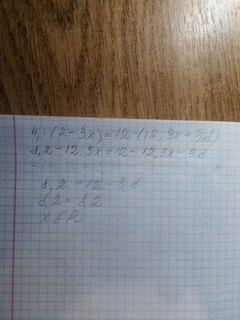 4,1(2-3x)=12-(12,3x+3,8)
8,2-12,3x=12-12,3x-3,8
8,2=12-3,8
8,2=8,2
x∈R